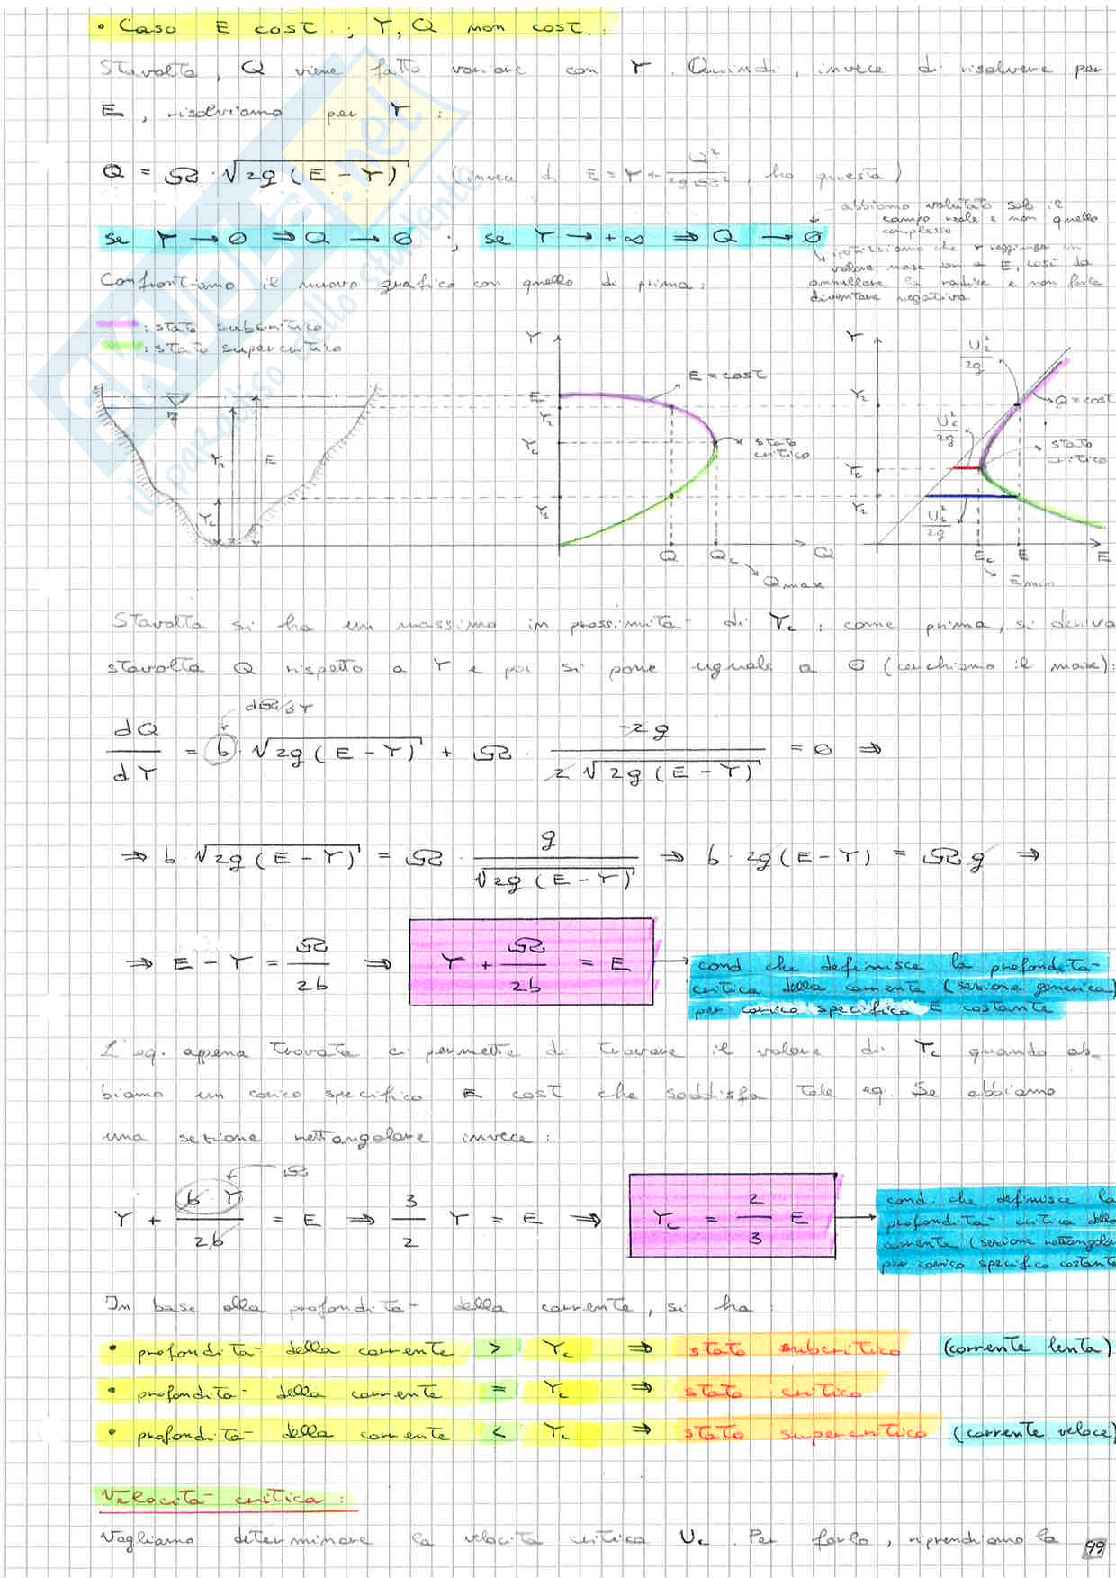 • Caso E cost.; Y, Q non cost.:
Stavolta, Q viene fatto variare con Y. Quindi, invece di risolvere per
E, risolviamo per Y:
Q = Ω · √2g(E − Y) (invece di E = Y + Q²/2gΩ², ho questa)
se Y → 0 ⇒ Q → 0 ; se Y → +∞ ⇒ Q → 0
abbiamo valutato solo il
campo reale e non quello
complesso
ipotizziamo che Y raggiunga un
valore max pari a E, così da
annullare la radice e non farla
diventare negativa
Confrontiamo il nuovo grafico con quello di prima:
: stato subcritico
: stato supercritico
E = cost
stato
critico
Q = cost
stato
critico
Q max
E min
Stavolta si ha un massimo in prossimità di Yc: come prima, si deriva
stavolta Q rispetto a Y e poi si pone uguale a 0 (cerchiamo il max):
dΩ/dY
dQ/dY = b · √2g(E − Y) + Ω · −2g/2√2g(E − Y) = 0 ⇒
⇒ b √2g(E − Y) = Ω · g/√2g(E − Y) ⇒ b · 2g(E − Y) = Ω g ⇒
⇒ E − Y = Ω/2b ⇒ Y + Ω/2b = E
cond. che definisce la profondità
critica della corrente (sezione generica)
per carico specifico E costante
L'eq. appena trovata ci permette di trovare il valore di Yc quando ab-
biamo un carico specifico E cost che soddisfa tale eq. Se abbiamo
una sezione rettangolare invece:
Ω
Y + b Y/2b = E ⇒ 3/2 Y = E ⇒ Yc = 2/3 E
cond. che definisce la
profondità critica della
corrente (sezione rettangola
per carico specifico costante
In base alla profondità della corrente, si ha:
• profondità della corrente > Yc ⇒ stato subcritico (corrente lenta)
• profondità della corrente = Yc ⇒ stato critico
• profondità della corrente < Yc ⇒ stato supercritico (corrente veloce)
Velocità critica:
Vogliamo determinare la velocità critica Uc. Per farlo, riprendiamo la
99